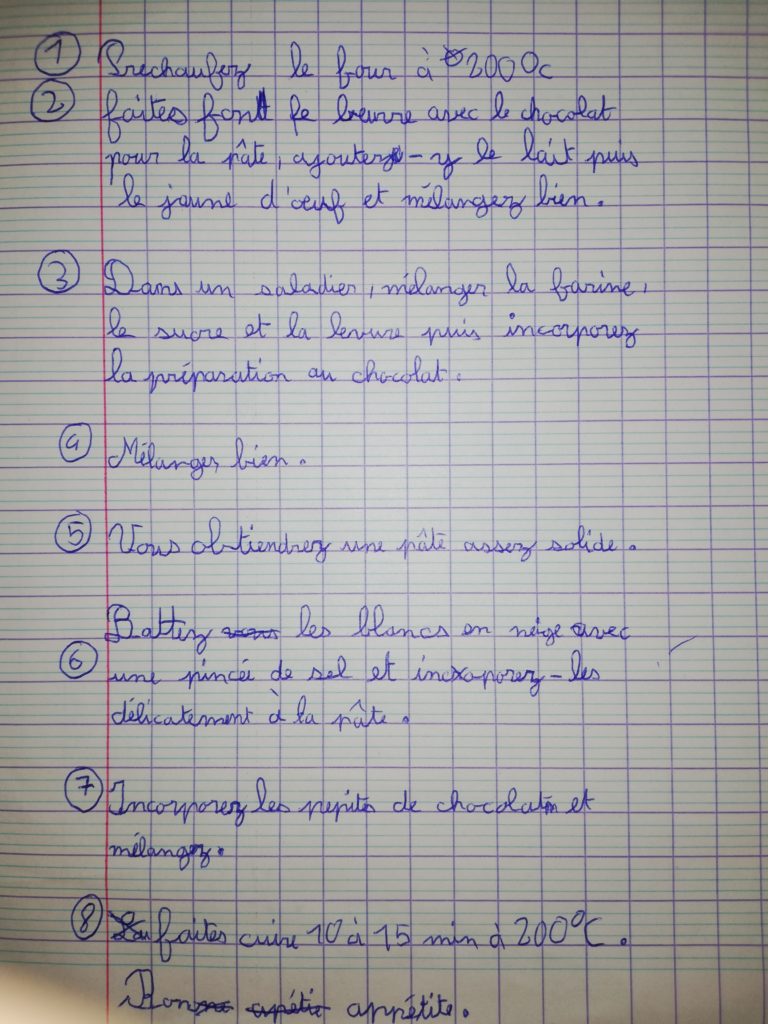 ① Prechaufez le four à 200°c
② faites font le beurre avec le chocolat
pour la pâte, ajoutez-y le lait puis
le jaune d'œuf et mélangez bien.
③ Dans un saladier, mélanger la farine,
le sucre et la levure puis incorporez
la préparation au chocolat.
④ Mélanges bien.
⑤ Vous obtiendrez une pâte assez solide.
Battez les blancs en neige avec
⑥ une pincée de sel et incoporez-les
délicatement à la pâte.
⑦ Incorporez les pepites de chocolat et
mélangez.
⑧ faites cuire 10 à 15 min à 200°C.
Bon appétite.